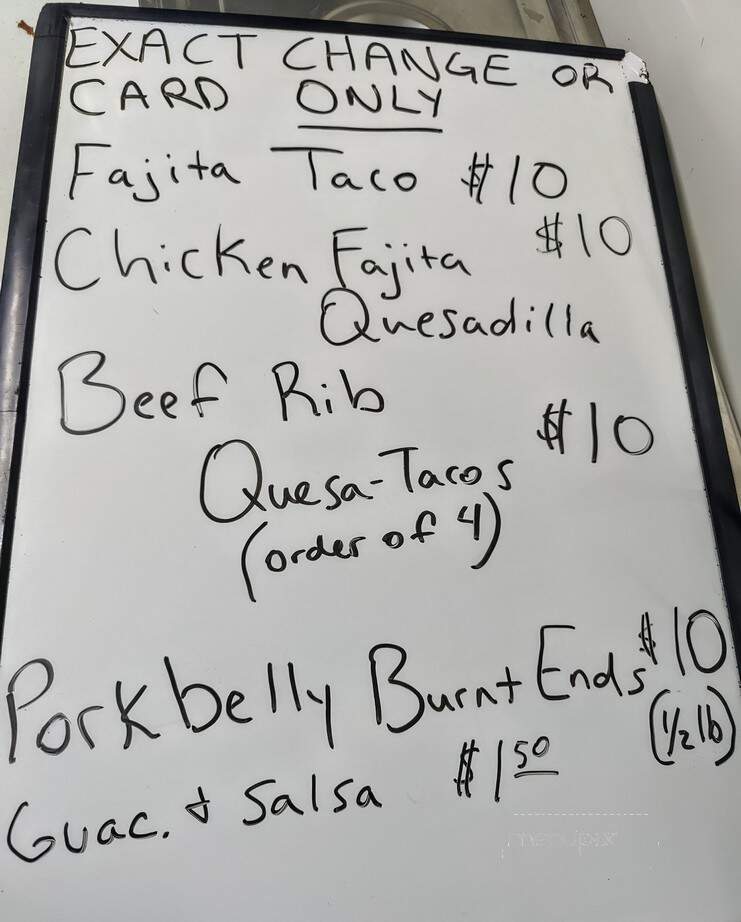 EXACT CHANGE OR
CARD ONLY
Fajita Taco $10
Chicken Fajita $10
Quesadilla
Beef Rib
Quesa-Tacos $10
(order of 4)
Porkbelly Burnt Ends $10
(1/2 lb)
Guac. & Salsa $1 50
menupix